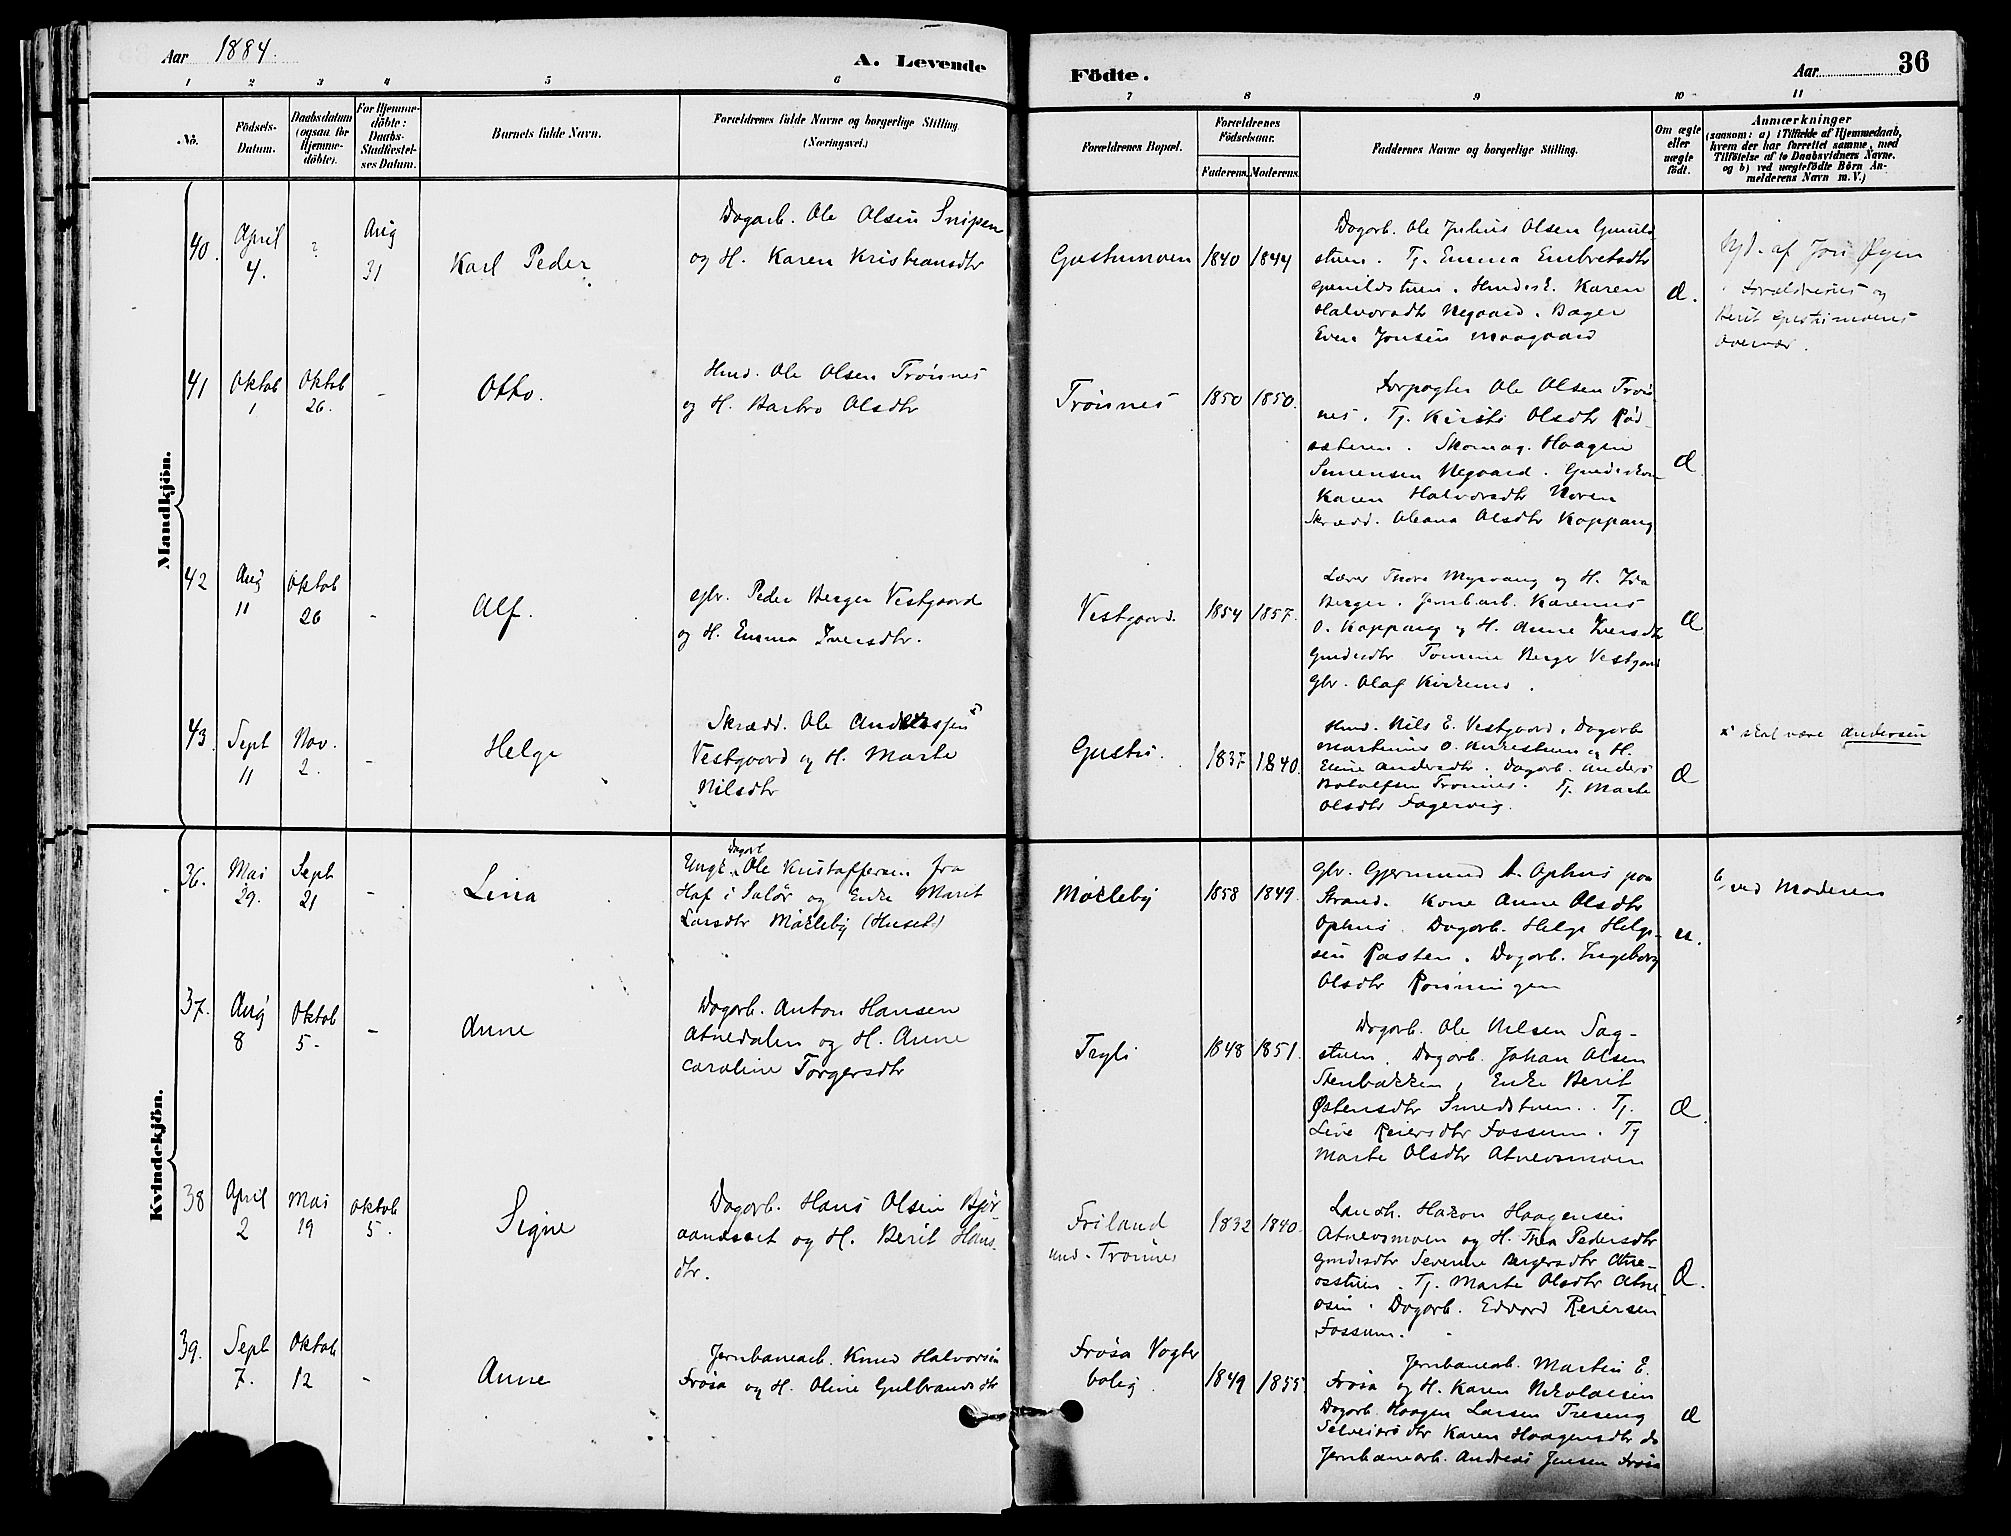 Aar 1884.
A. Levende
Födte.
Aar
36
1 2 3 4 5 6
7 8 9 10 11
No.
Födsels-
Datum.
Daabsdatum
(ogsaa for
Hjemme-
döbte).
For Hjemme-
döbte:
Daabs-
Stadfæstel-
ses Datum.
Barnets fulde Navn.
Forældrenes fulde Navne og borgerlige Stilling
(Næringsvei.)
Forældrenes Bopæl.
Forældrenes
Födselsaar.
Faderens. Moderens.
Faddernes Navne og borgerlige Stilling.
Om ægte
eller
uægte
födt.
Anmærkninger
(saasom: a) i Tilfælde af Hjemmedaab,
hvem der har forrettet samme, med
Tilföielse af to Daabsvidners Navne.
og b) ved uægtefödte Börn An-
melderens Navn m. V.)
Mandkjön.
40.
April
4.
?
Aug
31
Karl Peder
Dagarb. Ole Olsen Snipen
og H. Karen Kristiansdtr
Gustumoen
1840 1844
Dagarb. Ole Julius Olsen Gunild-
stuen. Tj. Emma Embretsdtr
Gunildstuen. Karen
Halvorsdtr Negaard. Bager
Even Jonsen Moagaard
æ.
af Øyen
Forældrenes og
Berit Gustumoens
41
Oktob
1
Oktob
26.
-
Otto.
Husm. Ole Olsen Trönnes
og H. Barbro Olsdtr
Trönnes
1850 1850.
Forpagter Ole Olsen Trön-
nes. Tj. Kirsti Olsdtr Rød-
sæteren. Skomag. Haagen
Simensen Negaard.
Karen Halvorsdtr Noren
Skrædd. Oleana Olsdtr Koppang
æ
42
Aug
11
Oktob
26
-
Alf.
Gbr. Peder Berger Vestgaard
og H. Emma Iversdtr.
Vestgaard.
1854 1857.
Lærer Thore Myrvang og H. Ida
Berger. Jernb.arb. Karenus
O. Koppang og H. Anne Iversdtr
Gmdsdtr Tomine Berger Vestgaard
Gbr. Olaf
æ
43.
Sept
11
Nov.
2.
-
Helge
Skrædd. Ole Anderssen x
Vestgaard og H. Marte
Nilsdtr
Gustu.
1837 1840.
Husm. Nils E. Vestgaard. Dagarb
Martinus O. og H.
Eline Andersdtr. Dagarb. Anders
Botolfsen Trönnes. Tj. Marte
Olsdtr Fagervig.
æ
x skal være Andersen
Kvindekjön.
36.
Mai
29.
Sept
21
-
Lina
Dagarb
Ungk. Ole Kristoffersen fra
Hof i Solör og Enke Marit
Larsdtr Mökleby (Huset)
Mökleby
1858 1849.
Gbr. Gjermund A. Ophus paa
Strand. Kone Anne Olsdtr
Ophus. Dagarb. Helge Helge-
sen Rasten. Dagarb. Ingeborg
Olsdtr Rönningen
u.
b, ved Moderen
37.
Aug
8
Oktob
5.
-
Anne
Dagarb. Anton Hansen
Atnedalen og H. Anne
Caroline Torgersdtr
Tryli
1848 1851.
Dagarb. Ole Nilsen Sag-
stuen. Dagarb. Johan Olsen
Stenbakken, Enke Berit
Østensdtr Smedstuen. Tj.
Line Reiersdtr Fossum. Tj
Marte Olsdtr Atneosmoen
æ.
38
April
2
Mai
19
Oktob
5.
Signe
Dagarb. Hans Olsen Björ-
aanæset og H. Berit Hans-
dtr.
Friland
und. Trönnes
1832 1840.
Landh. Hakon Haagensen
Atneosmoen og H. Thea Pedersdtr
Gmdsdtr Severine Bergersdtr Atne-
osstuen. Tj. Marte Olsdtr Atne-
osen. Dagarb. Edvard Reiersen
Fossum.
Æ.
39.
Sept
7.
Oktob
12
-
Anne
Jernbanearb. Knud Halvorsen
Frösa og H. Oline Gulbrandsdtr
Frösa Vogter
bolig.
1849 1855.
Jernbanearb. Martin E.
Frösa og H. Karen Nikolaisen
Dagarb. Haagen Larsen Treseng
Selveiersdtr Karen Haagensdtr do
Jernbanearb. Andreas Jensen Frösa
æ